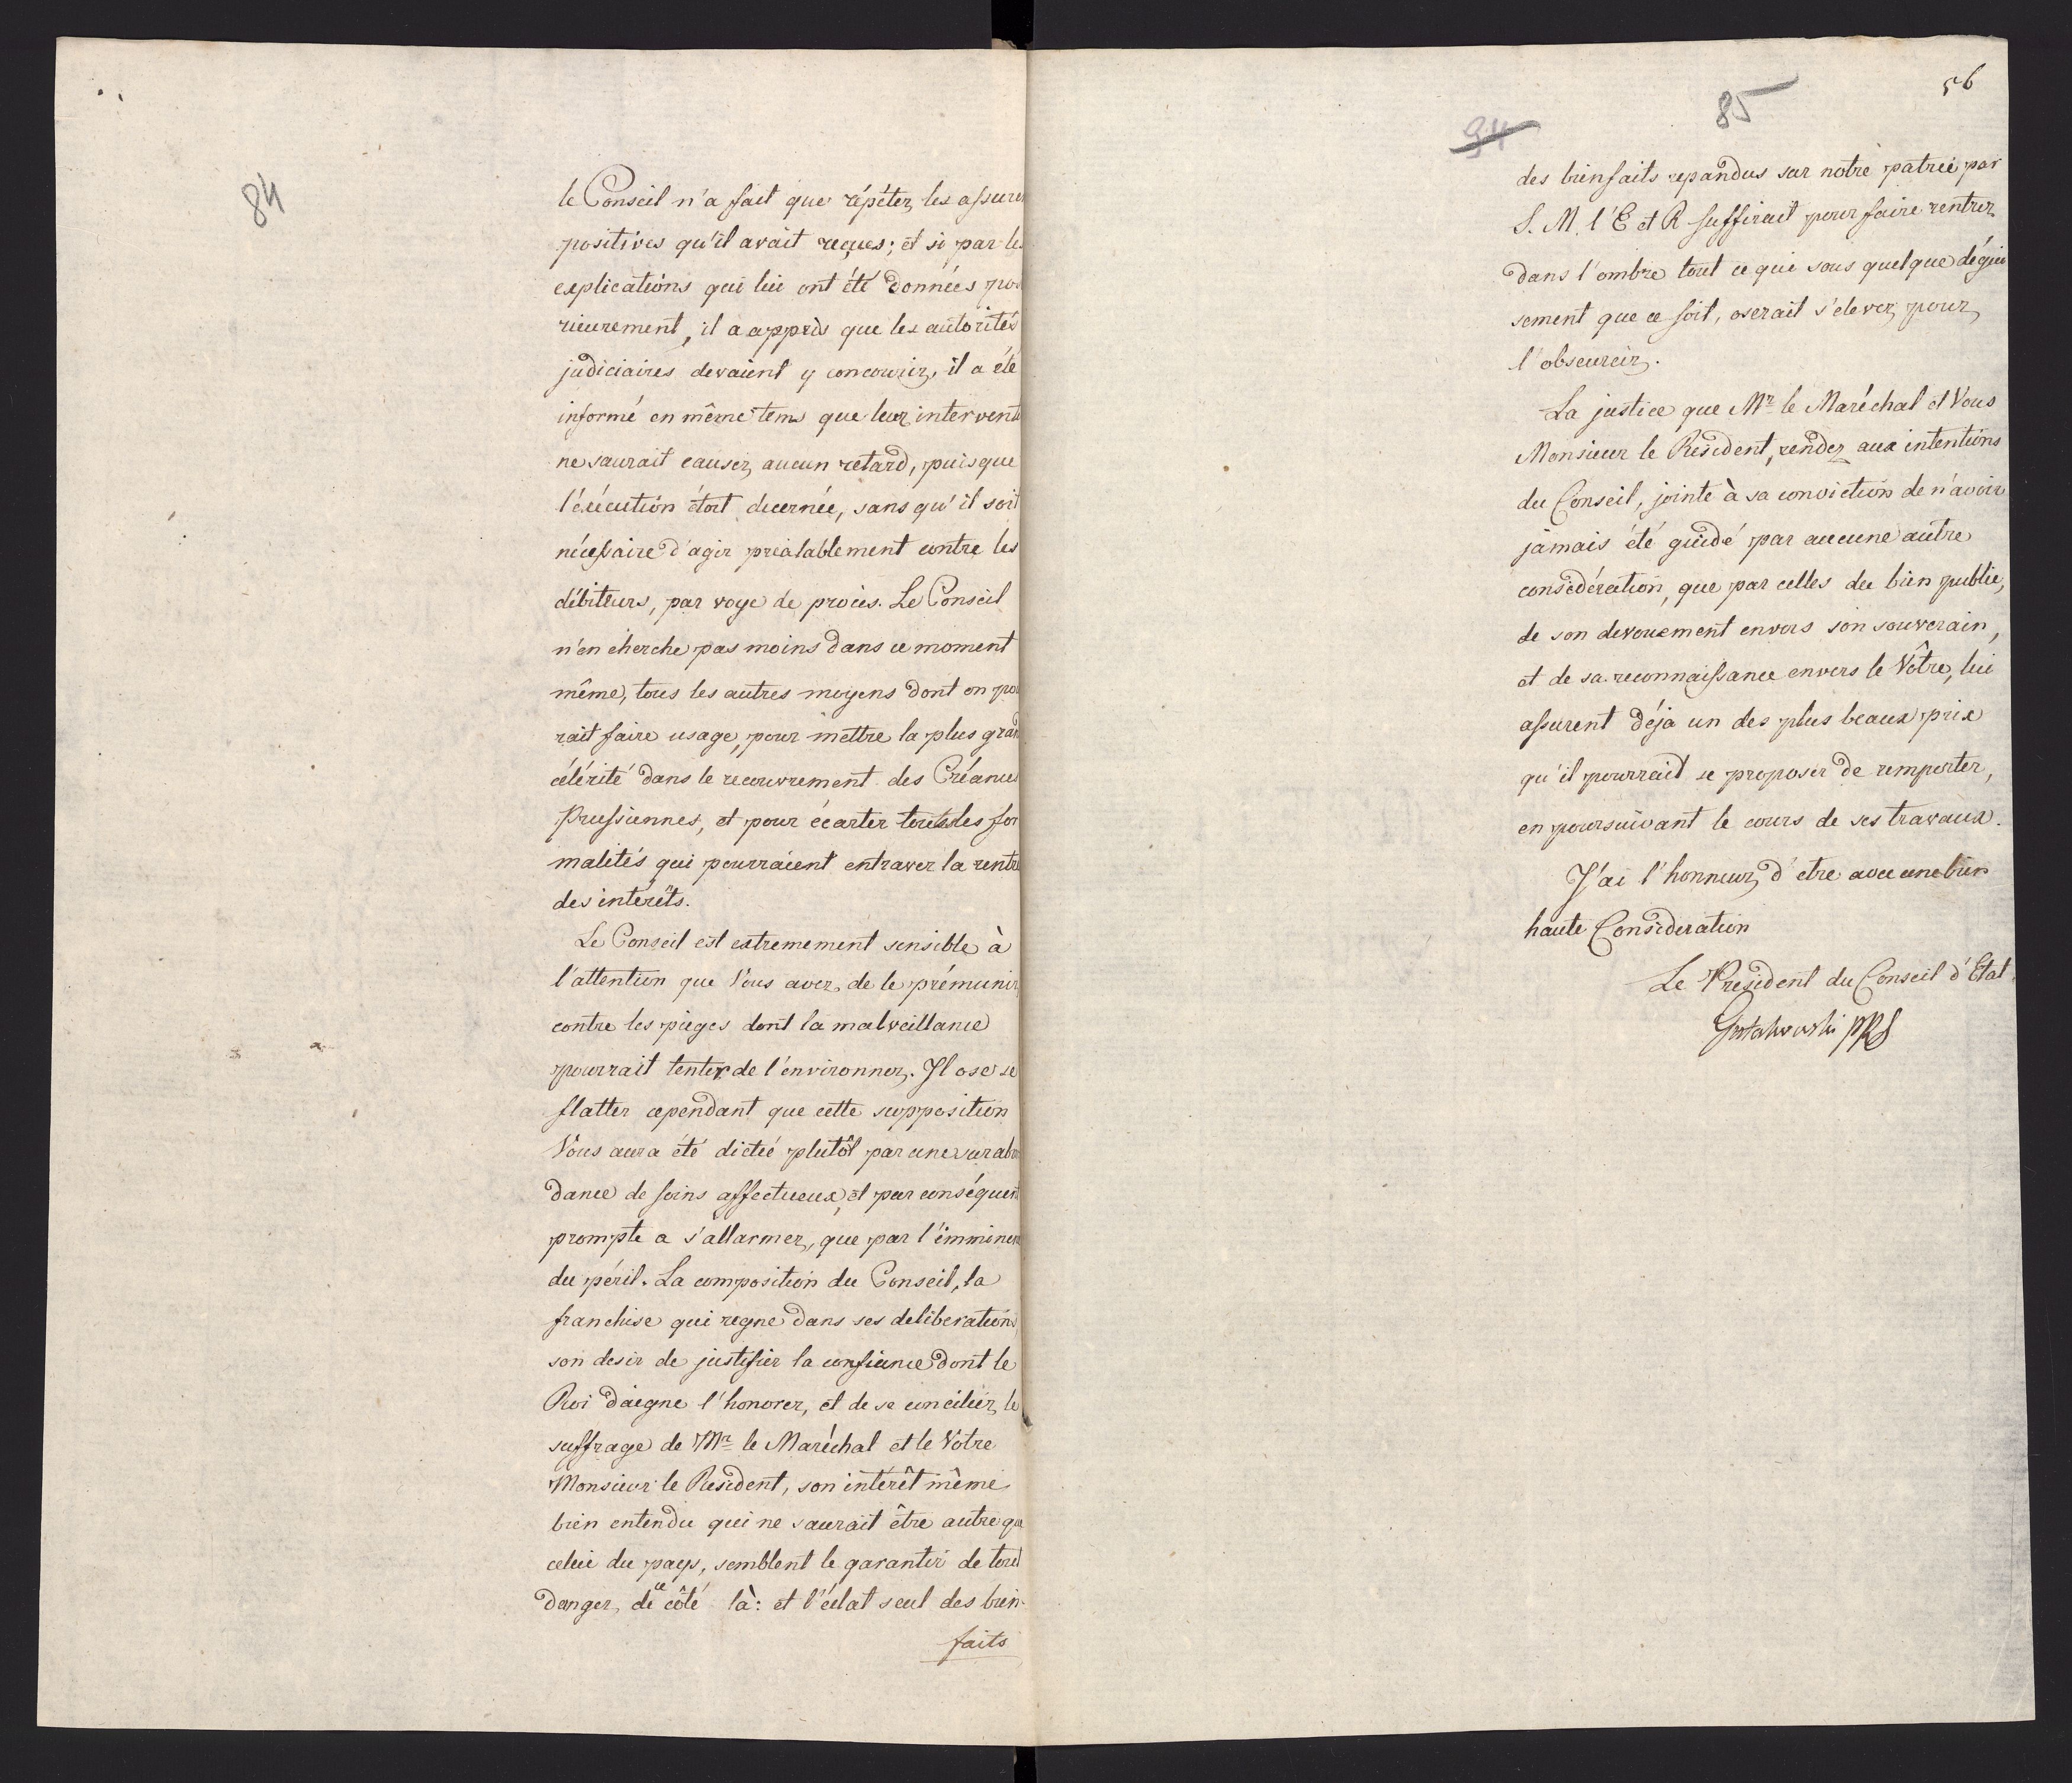 84
le Conseil n'a fait que répéter les assuren
positives qu'il avait reçues; et si par les
explications qui lui ont été données pos
rieurement, il a appris que les autorités
judiciaires devaient y concourir, il a été
informé en même tems que leur interventi
ne saurait causer aucun retard, puisque
l'éxécution étoit decernée, sans qu'il soit
nécessaire d'agir préalablement contre les
débiteurs, par voye de procès. Le Conseil
n'en cherche pas moins dans ce moment
même, tous les autres moyens dont on pou
rait faire usage, pour mettre la plus grand
célérité dans le recouvrement des Créances
Prussiennes, et pour écarter toutes les for
malités qui pourraient entraver la rentré
des intérêts.
Le Conseil est extremement sensible à
l'attention que Vous avez, de le prémunir
contre les pièges dont la malveillance
pourrait tenter de l'environner. Il ose se
flatter cependant que cette supposition
Vous aura été dictée plutôt par une surabon
dance de soins affectueux, et par conséquent
prompte a s'allarmer, que par l'imminen
du péril. La composition du Conseil, la
franchise qui regne dans ses deliberations,
son desir de justifier la confiance dont le
Roi daigne l'honorer, et de se concilier le
suffrage de Mr. le Maréchal et le Votre
Monsieur le Resident, son intérêt même
bien entendu qui ne saurait être autre que
celui du pays, semblent le garantir de tout
danger, de ce côté là: et l'éclat seul des bien-
faits
56
85
94
des bienfaits repandus sur notre patrie par
S. M. l'E et R suffirait pour faire rentrer
dans l'ombre tout ce qui sous quelque dégui
sement que ce soit, oserait s'elever pour
l'obscurcir.
La justice que Mr. le Maréchal et Vous
Monsieur le Resident, rendez aux intentions
du Conseil, jointe à sa conviction de n'avoir
jamais été guidé par aucune autre
considération, que par celles du bien public,
de son devouement envers son souverain,
et de sa reconnaissance envers le Vôtre, lui
assurent déja un des plus beaux prix
qu'il pourrait se proposer de remporter,
en poursuivant le cours de ses travaux.
J'ai l'honneur d'etre avec une bien
haute Consideration
Le President du Conseil d'Etat
Gutakowski PRS